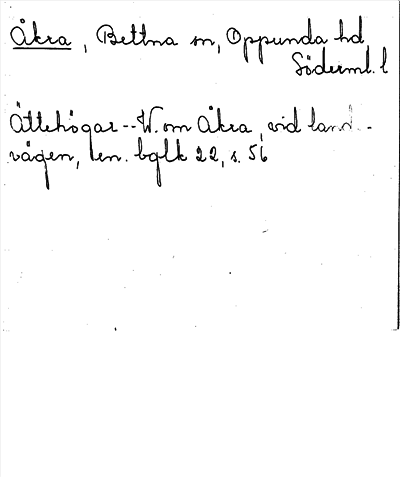 Åkra, Bettna sn, Oppunda hd
Söderml. l
Ättehögar -- W. om Åkra, vid land-
vägen, len. bglk 22, s. 56